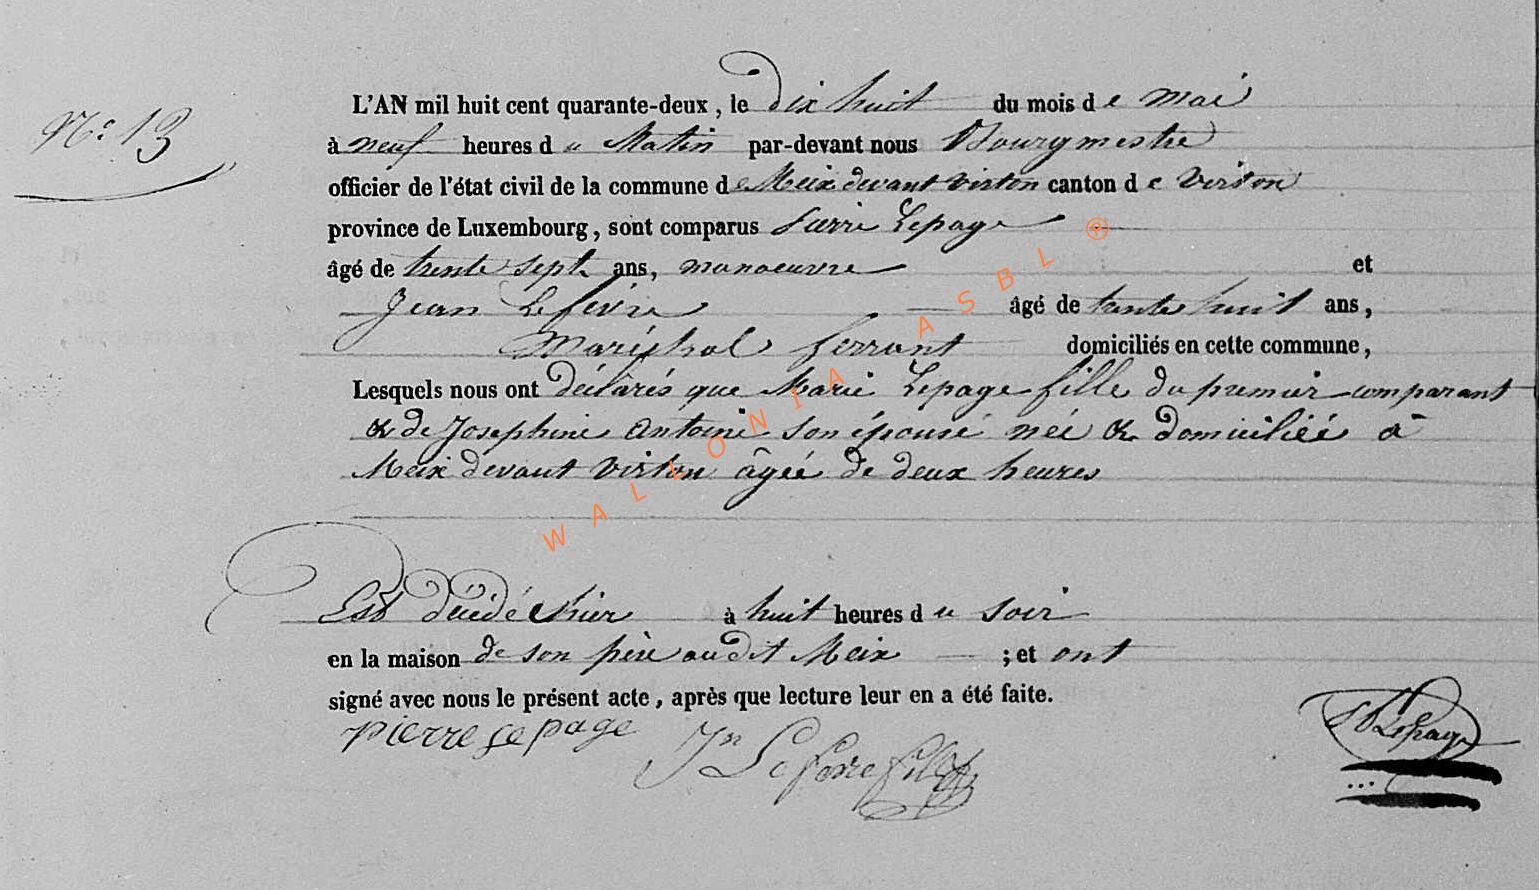 N° 13
L'AN mil huit cent quarante-deux, le dix huit du mois de mai
à neuf heures du Matin par-devant nous Bourgmestre
officier de l'état civil de la commune de Meix devant virton canton de virton
province de Luxembourg, sont comparus Pierre Lepage
âgé de trente sept ans, manoeuvre et
Jean Lefevre âgé de trente huit ans,
Maréchal ferrant domiciliés en cette commune,
Lesquels nous ont déclarés que Marie Lepage fille du premier comparant
& de Josephine Antoine son épouse née & domiciliée à
Meix devant virton âgée de deux heures
Est décédé hier à huit heures du soir
en la maison de son père audit Meix ; et ont
signé avec nous le présent acte, après que lecture leur en a été faite.
pierre Lepage Jn Lefevre Lepage
WALLONIA ASBL ®